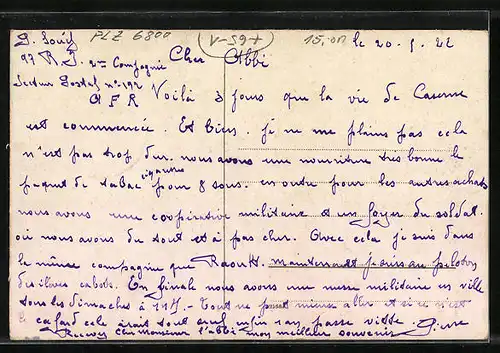 PLZ 6800
15,00
le 20-5.22
2me Compagnie
Secteur Postal n° 192
A F R
Cher Abbé
Voilà 3 jours que la vie de Caserne
est commencée. Et bien. je ne me plains pas cela
n'est pas trop dur. nous avons une nourriture très bonne le
paquet de tabac cigarettes pour 8 sous. en outre pour les autres achats
nous avons une coopérative militaire et un foyer du soldat.
où nous avons de tout et à pas cher. Avec cela je suis dans
la même compagnie que maintenant je suis au peloton
des élèves cabots. En finale nous avons une messe militaire en ville
tous les dimaches à - Tout ne peut mieux aller et si ce n'est
le cafard cela irait tout enfin ça passe vite.
Recevez cher monsieur l'abbé mon meilleur souvenir